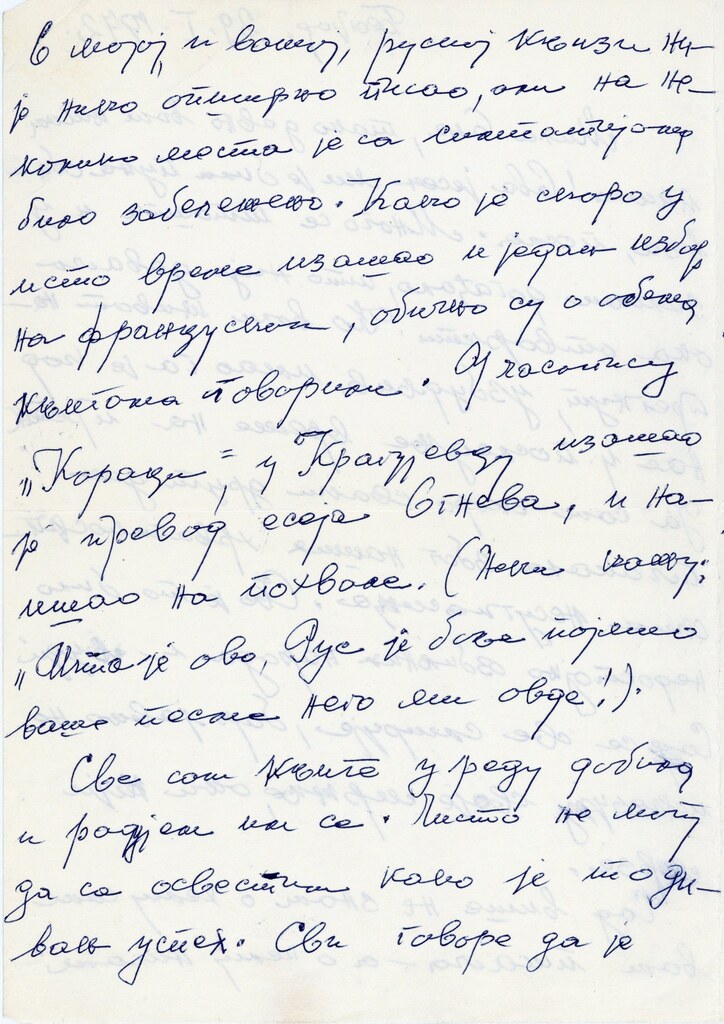 О мојој, и вашој, руској књизи ни-
је нико опширно писао, али на не-
колико места је са симпатијама
било забележено. Како је скоро у
исто време изашао и један избор
на француском, обично су о обема
књигама говорили. У часопису
„Кораци“, у Крагујевцу изашао
је превод есеја Огњева, и на-
ишао на похвале. (Неки кажу:
„Шта је ово, Рус је боље појмио
ваше песме него ми овде!).
Све сам књиге уреду добила
и радујем им се. Чисто не могу
да се освестим како је то ди-
ван успех. Сви говоре да је